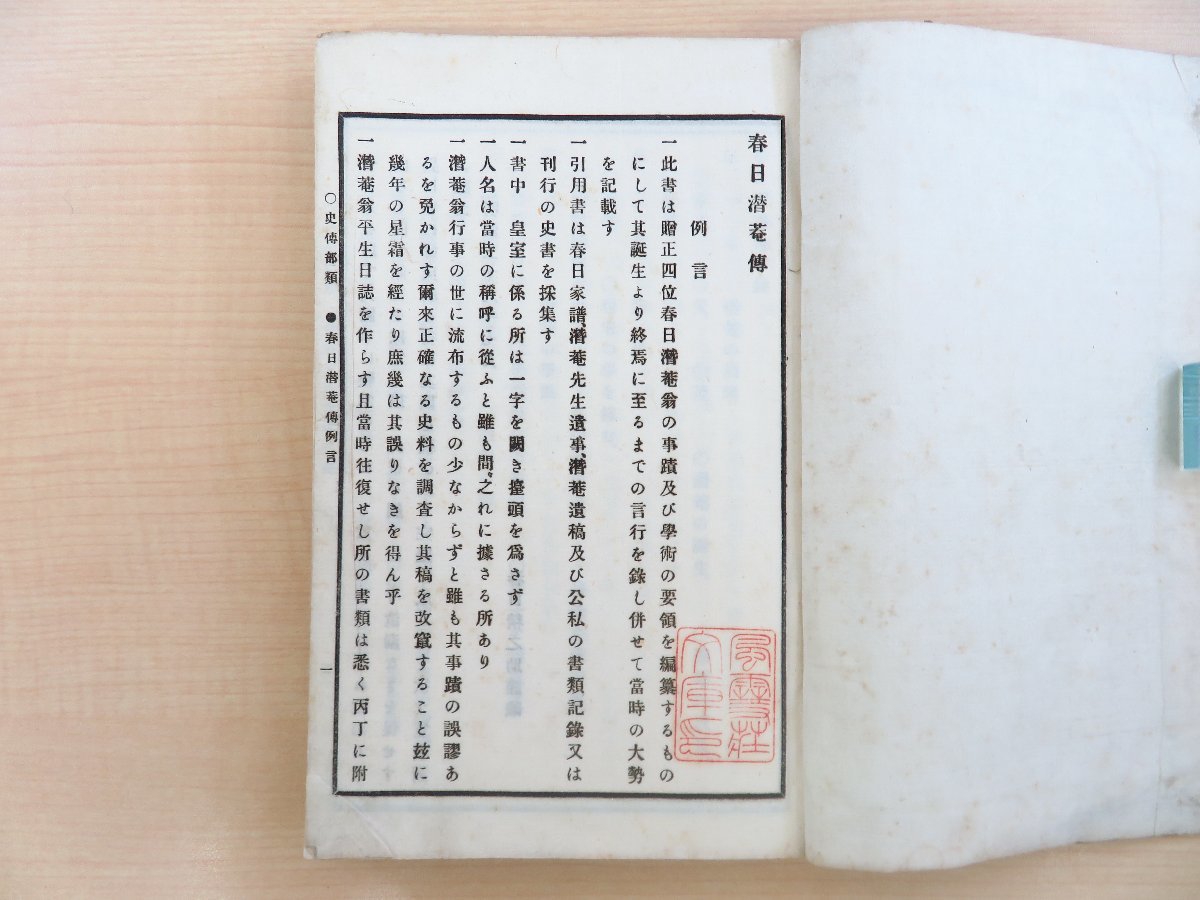 春日潜菴傳
例言
一此書は贈正四位春日潛菴翁の事蹟及び學術の要領を編纂するもの
にして其誕生より終焉に至るまでの言行を錄し併せて當時の大勢
を記載す
一引用書は春日家譜、潛菴先生遺事、潛菴遺稿及び公私の書類記錄又は
刊行の史書を採集す
一書中　皇室に係る所は一字を闕き擡頭を爲さず
一人名は當時の稱呼に從ふと雖も間〻之れに據さる所あり
一潛菴翁行事の世に流布するもの少なからずと雖も其事蹟の誤謬あ
るを免かれす爾來正確なる史料を調査し其稿を改竄すること玆に
幾年の星霜を經たり庶幾は其誤りなきを得ん乎
一潛菴翁平生日誌を作らす且當時往復せし所の書類は悉く丙丁に附
○史傳部類　●春日潛菴傳例言　一
文庫印